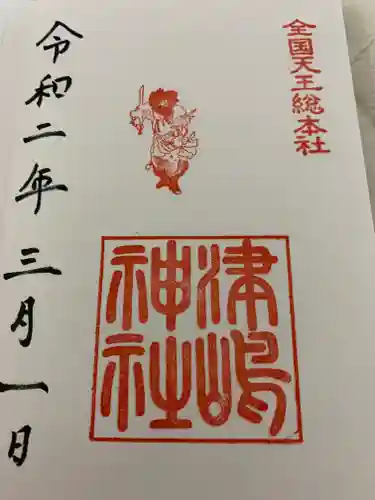 全国天王総本社
津嶋
神社
令和二年三月一日